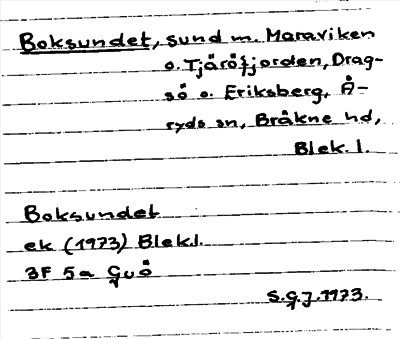 Boksundet, sund m. Maraviken
o. Tjäröfjorden, Drag-
sö o. Eriksberg, Å-
ryds sn, Bräkne hd,
Blek. l.
Boksundet
ek (1973) Blek.l.
3F 5a Guö
S.G.J. 1973.